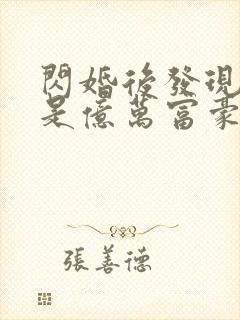 閃婚後發現
是億萬富豪
張善德